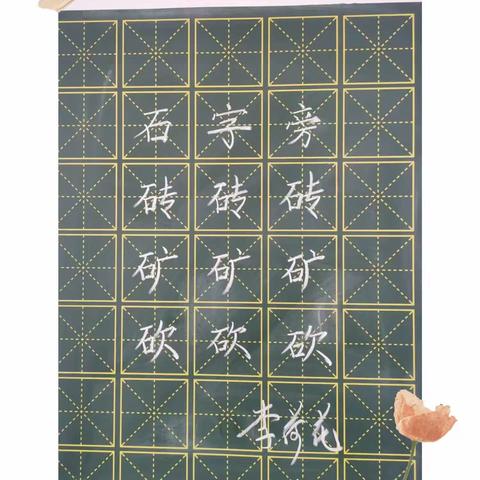 石字旁
砖砖砖
矿矿矿
砍砍砍
李荷花